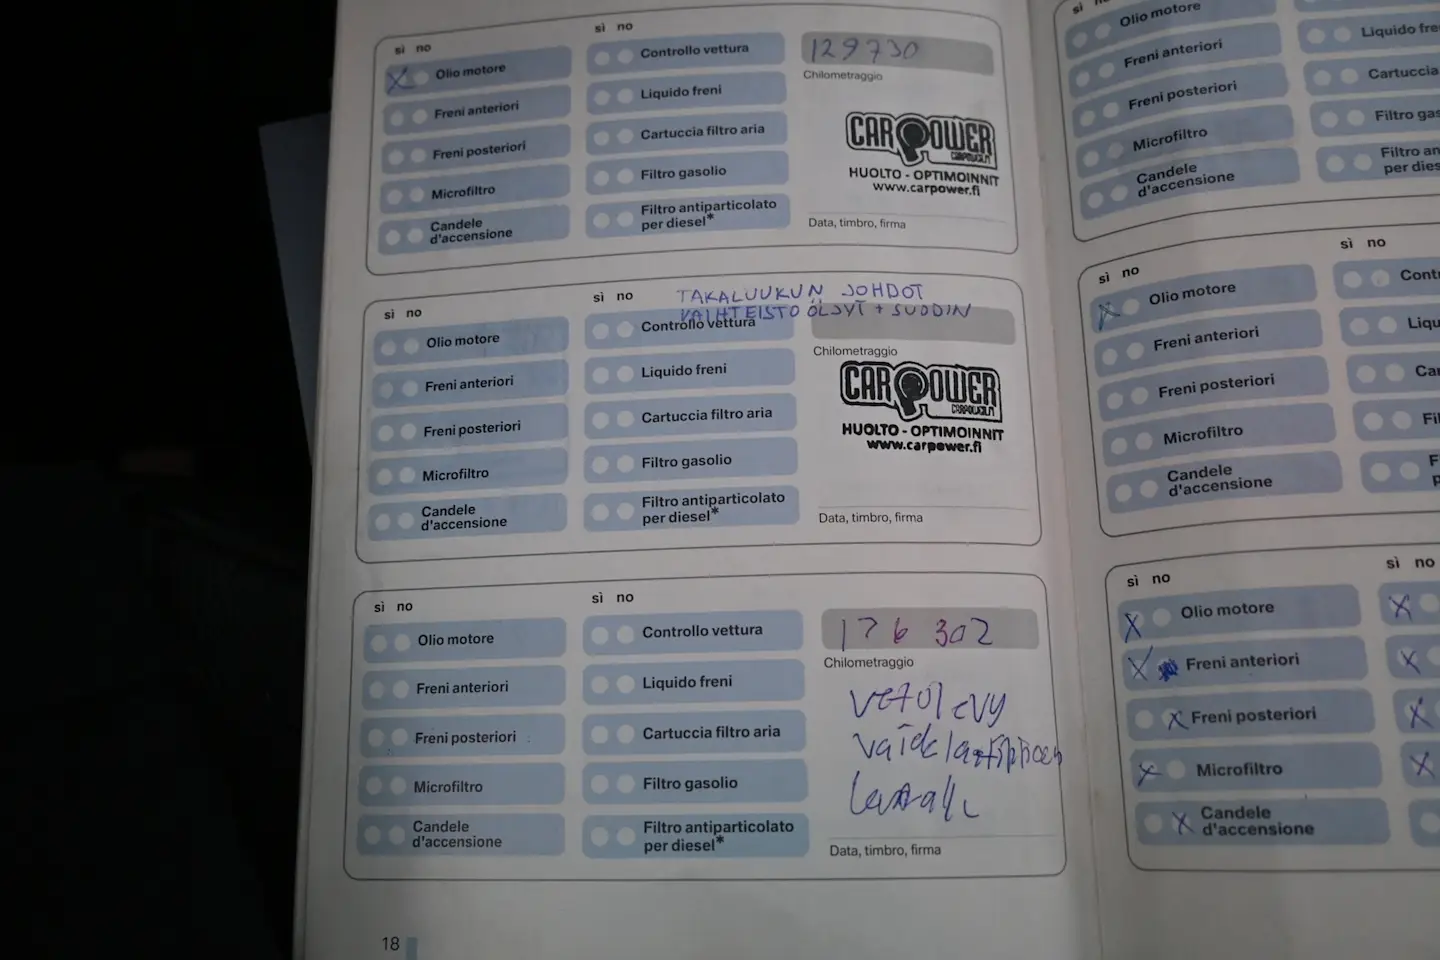 sì no
sì no
Olio motore
Freni anteriori
Freni posteriori
Microfiltro
Candele
d'accensione
Controllo vettura
Liquido freni
Cartuccia filtro aria
Filtro gasolio
Filtro antiparticolato
per diesel*
129730
Chilometraggio
CARPOWER
HUOLTO - OPTIMOINNIT
www.carpower.fi
Data, timbro, firma
sì no
sì no
TAKALUUKUN JOHDOT
VAIHTEISTO ÖLJYT + SUODIN
Olio motore
Freni anteriori
Freni posteriori
Microfiltro
Candele
d'accensione
Controllo vettura
Liquido freni
Cartuccia filtro aria
Filtro gasolio
Filtro antiparticolato
per diesel*
Chilometraggio
CARPOWER
HUOLTO - OPTIMOINNIT
www.carpower.fi
Data, timbro, firma
sì no
sì no
Olio motore
Freni anteriori
Freni posteriori
Microfiltro
Candele
d'accensione
Controllo vettura
Liquido freni
Cartuccia filtro aria
Filtro gasolio
Filtro antiparticolato
per diesel*
176 302
Chilometraggio
Data, timbro, firma
18
sì
Olio motore
Freni anteriori
Freni posteriori
Microfiltro
Candele
d'accensione
Liquido fre
Cartuccia
Filtro gas
Filtro an
per dies
sì no
sì no
Olio motore
Freni anteriori
Freni posteriori
Microfiltro
Candele
d'accensione
Cont
Liqu
Ca
Fi
F
p
sì no
sì no
Olio motore
Freni anteriori
Freni posteriori
Microfiltro
Candele
d'accensione